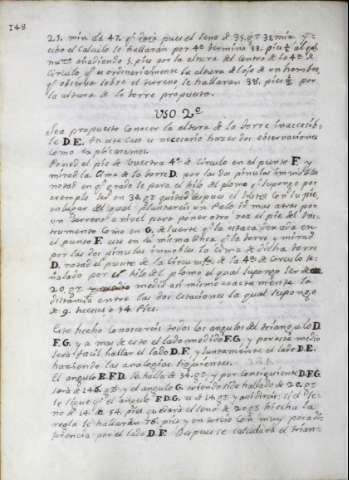 148
23. min de 47. gs. para pues el seno de 35. gs. 35 min y
echo el Calculo se hallaran por 4º termino 33. pies ½ al qual
numero añadiendo 5. pies por la altura del Centro de la 4ª de
Circulo qe es ordinariamente la altura de lojo de un hombre
qe observa sobre el terreno se hallaran 38. pies ½ por
la altura de la torre propuesta.
VSO 2º
Sea propuesto Conocer la altura de la torre Inaccesib-
le D.E. En este Caso es necesario hacer dos observaciones
como explicaremos.
Poned el pie de vuestra 4ª de Circulo en el punto F y
mirad la Cima de la torre D. por las dos pinulas
notad en qe grado se para el hilo del plomo y supongo por
exemplo ser en 34. gs quitad despues el
plantareis un palo
un terreno a nivel para poner otra vez el pie del Ins-
trumento Como en G. de suerte qe la estaca
el punto F. este en la misma linea qe la torre y mirad
por las dos pinulas inmobles la Cima de dicha torre
D. notad el punto de la Circunfa. de la 4ª de Circulo Se-
ñalado por el hilo del plomo el qual supongo ser de
20. gs medid asi mismo exactamente la
distancia entre las dos estaciones la qual supongo
de 9. hexas o 54. Pies.
Esto hecho Conocereis todos los angulos del triangulo D.
F.G. y a mas de esto el lado medido F.G. y por este medio
sera facil hallar el lado D.F. y juntamente el lado D.E.
haziendo las analogias siguientes.
El angulo E.F.D. se halla de 34. gs. y por Consiguiente D.F.G.
sera de 146. gs. y el angulo G. haviendole hallado de 20. gs.
se sigue qe el angulo F.D.G. es de 14. gs. y assi direis si el Se-
no de 14. da 54. pies que dara el seno de 20 gs hecha la
regla se hallaran 76. pies y un tercio con muy poca di-
ferencia por el lado D.F. Despues se calculara el trian-